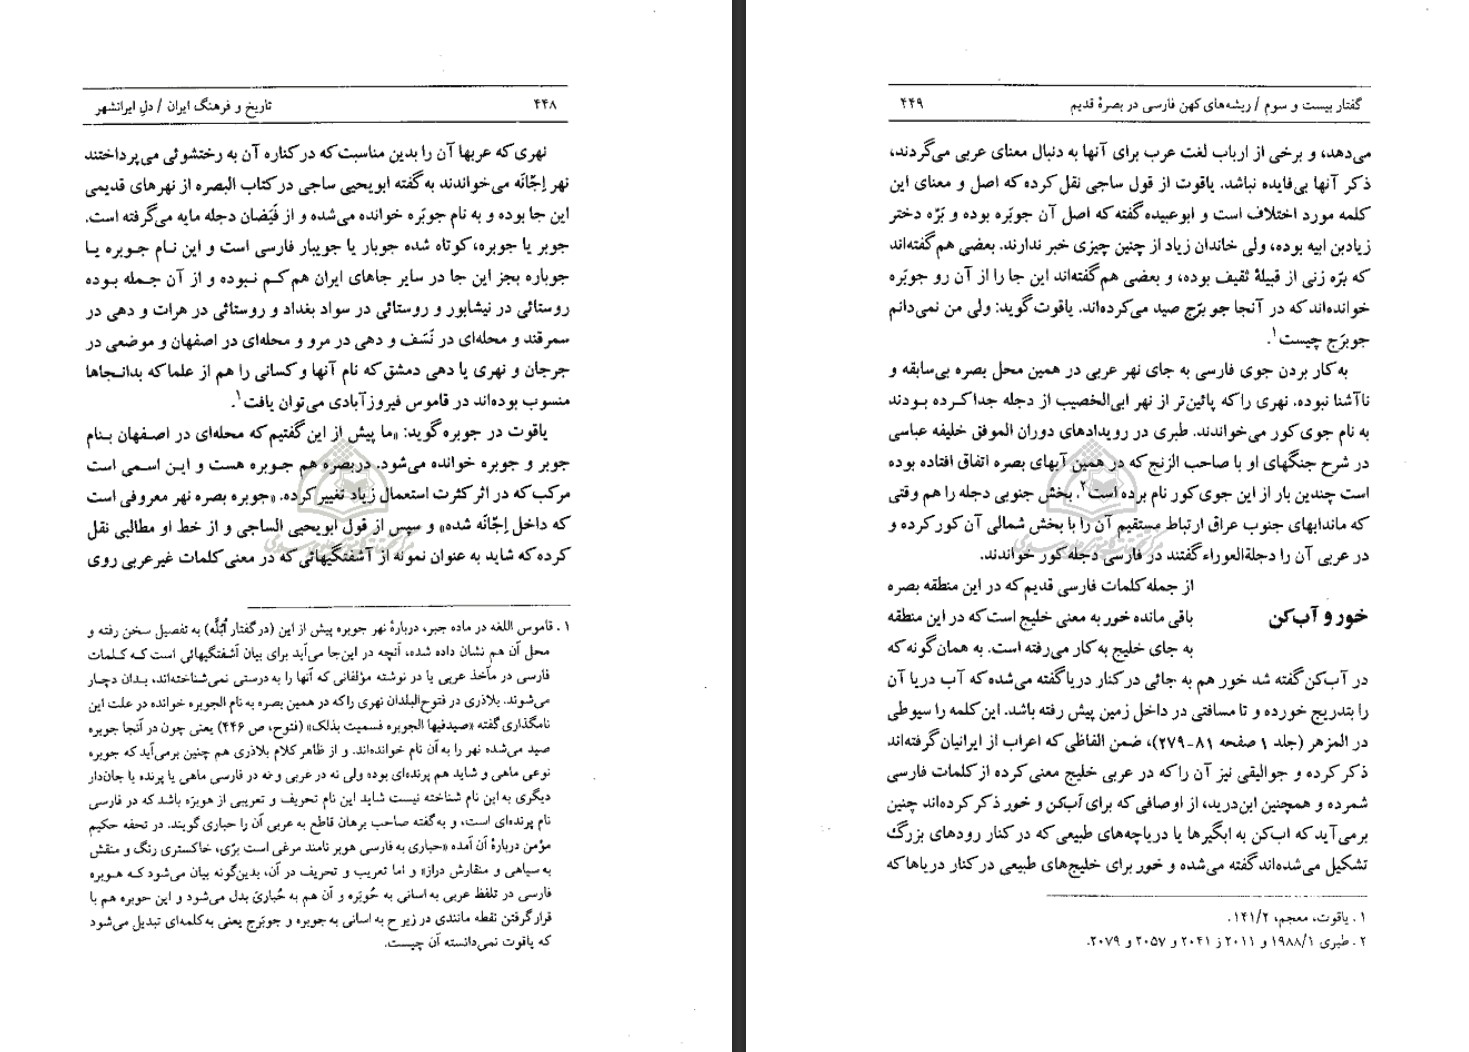 ۴۴۸ تاریخ و فرهنگ ایران / دل ایرانشهر
نهری که عربها آن را بدین مناسبت که در کناره آن به رختشوئی می‌پرداختند
نهر اِجّانَه می‌خواندند به گفته ابویحیی ساجی در کتاب البصره از نهرهای قدیمی
این جا بوده و به نام جوبَره خوانده می‌شده و از فَیَضان دجله مایه می‌گرفته است.
جوبر یا جوبره، کوتاه شده جوبار یا جویبار فارسی است و این نام جوبره یا
جوباره بجز این جا در سایر جاهای ایران هم کم نبوده و از آن جمله بوده
روستائی در نیشابور و روستائی در سواد بغداد و روستائی در هرات و دهی در
سمرقند و محله‌ای در نَسَف و دهی در مرو و محله‌ای در اصفهان و موضعی در
جرجان و نهری یا دهی دمشق که نام آنها و کسانی را هم از علما که بدانجاها
منسوب بوده‌اند در قاموس فیروزآبادی می‌توان یافت۱.
یاقوت در جوبره گوید: «ما پیش از این گفتیم که محله‌ای در اصفهان بنام
جوبر و جوبره خوانده می‌شود. دربصره هم جوبره هست و این اسمی است
مرکب که در اثر کثرت استعمال زیاد تغییر کرده. «جوبره بصره نهر معروفی است
که داخل اِجّانَه شده» و سپس از قول ابویحیی الساجی و از خط او مطالبی نقل
کرده که شاید به عنوان نمونه از آشفتگیهائی که در معنی کلمات غیرعربی روی
۱. قاموس اللغه در ماده جبر، دربارهٔ نهر جوبره پیش از این (در گفتار اُبُلَّه) به تفصیل سخن رفته و
محل آن هم نشان داده شده، آنچه در این‌جا می‌آید برای بیان آشفتگیهائی است که کلمات
فارسی در مآخذ عربی یا در نوشته مؤلفانی که آنها را به درستی نمی‌شناخته‌اند، بدان دچار
می‌شوند. بلاذری در فتوح‌البلدان نهری را که در همین بصره به نام الجوبره خوانده در علت این
نامگذاری گفته «صیدفیها الجوبره فسمیت بذلک» (فتوح، ص ۴۴۶) یعنی چون در آنجا جوبره
صید می‌شده نهر را به آن نام خوانده‌اند. و از ظاهر کلام بلاذری هم چنین برمی‌آید که جوبره
نوعی ماهی و شاید هم پرنده‌ای بوده ولی نه در عربی و نه در فارسی ماهی یا پرنده یا جان‌دار
دیگری به این نام شناخته نیست شاید این نام تحریف و تعریبی از هوبَره باشد که در فارسی
نام پرنده‌ای است، و به گفته صاحب برهان قاطع به عربی آن را حباری گویند. در تحفه حکیم
مؤمن دربارهٔ آن آمده «حباری به فارسی هوبر نامند مرغی است برّی، خاکستری رنگ و منقش
به سیاهی و منقارش دراز» و اما تعریب و تحریف در آن، بدین‌گونه بیان می‌شود که هوبره
فارسی در تلفظ عربی به اسانی به حُوبَره و آن هم به حُباریٰ بدل می‌شود و این حوبره هم با
قرار گرفتن نقطه مانندی در زیر ح به اسانی به جوبره و جوبَرج یعنی به کلمه‌ای تبدیل می‌شود
که یاقوت نمی‌دانسته آن چیست.
گفتار بیست و سوم / ریشه‌های کهن فارسی در بصرهٔ قدیم ۴۴۹
می‌دهد، و برخی از ارباب لغت عرب برای آنها به دنبال معنای عربی می‌گردند،
ذکر آنها بی‌فایده نباشد. یاقوت از قول ساجی نقل کرده که اصل و معنای این
کلمه مورد اختلاف است و ابوعبیده گفته که اصل آن جوبَره بوده و بَرّه دختر
زیادبن ابیه بوده، ولی خاندان زیاد از چنین چیزی خبر ندارند. بعضی هم گفته‌اند
که برّه زنی از قبیلهٔ ثقیف بوده، و بعضی هم گفته‌اند این جا را از آن رو جوبَره
خوانده‌اند که در آنجا جوبرّج صید می‌کرده‌اند. یاقوت گوید: ولی من نمی‌دانم
جوبرَج چیست۱.
به کار بردن جوی فارسی به جای نهر عربی در همین محل بصره بی‌سابقه و
ناآشنا نبوده. نهری را که پائین‌تر از نهر ابی‌الخصیب از دجله جدا کرده بودند
به نام جوی کور می‌خواندند. طبری در رویدادهای دوران الموفق خلیفه عباسی
در شرح جنگهای او با صاحب الزنج که در همین آبهای بصره اتفاق افتاده بوده
است چندین بار از این جوی کور نام برده است۲. بخش جنوبی دجله را هم وقتی
که ماندابهای جنوب عراق ارتباط مستقیم آن را با بخش شمالی آن کور کرده و
در عربی آن را دجلةالعوراء گفتند در فارسی دجله کور خواندند.
خور و آب‌کن
از جمله کلمات فارسی قدیم که در این منطقه بصره
باقی مانده خور به معنی خلیج است که در این منطقه
به جای خلیج به کار می‌رفته است. به همان گونه که
در آب‌کن گفته شد خور هم به جائی در کنار دریا گفته می‌شده که آب دریا آن
را بتدریج خورده و تا مسافتی در داخل زمین پیش رفته باشد. این کلمه را سیوطی
در المزهر (جلد ۱ صفحه ۸۱-۲۷۹)، ضمن الفاظی که اعراب از ایرانیان گرفته‌اند
ذکر کرده و جوالیقی نیز آن را که در عربی خلیج معنی کرده از کلمات فارسی
شمرده و همچنین ابن‌درید، از اوصافی که برای آب‌کن و خور ذکر کرده‌اند چنین
برمی‌آید که اب‌کن به ابگیرها یا دریاچه‌های طبیعی که در کنار رودهای بزرگ
تشکیل می‌شده‌اند گفته می‌شده و خور برای خلیج‌های طبیعی در کنار دریاها که
۱. یاقوت، معجم، ۱۴۱/۲.
۲. طبری ۱۹۸۸/۱ و ۲۰۱۱ ز ۲۰۴۱ و ۲۰۵۷ و ۲۰۷۹.